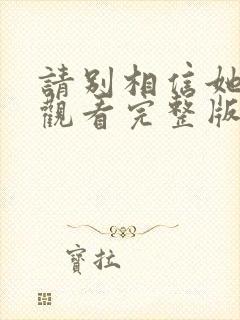 請別相信她
觀看完整版
寶拉